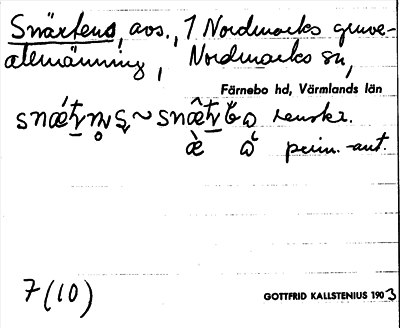 Snärtens, avs., 1 Nordmarks gruve-
allmänning, Nordmarks sn,
Färnebo hd, Värmlands län
renskr.
prim.-ant.
7(10)
GOTTFRID KALLSTENIUS 1903